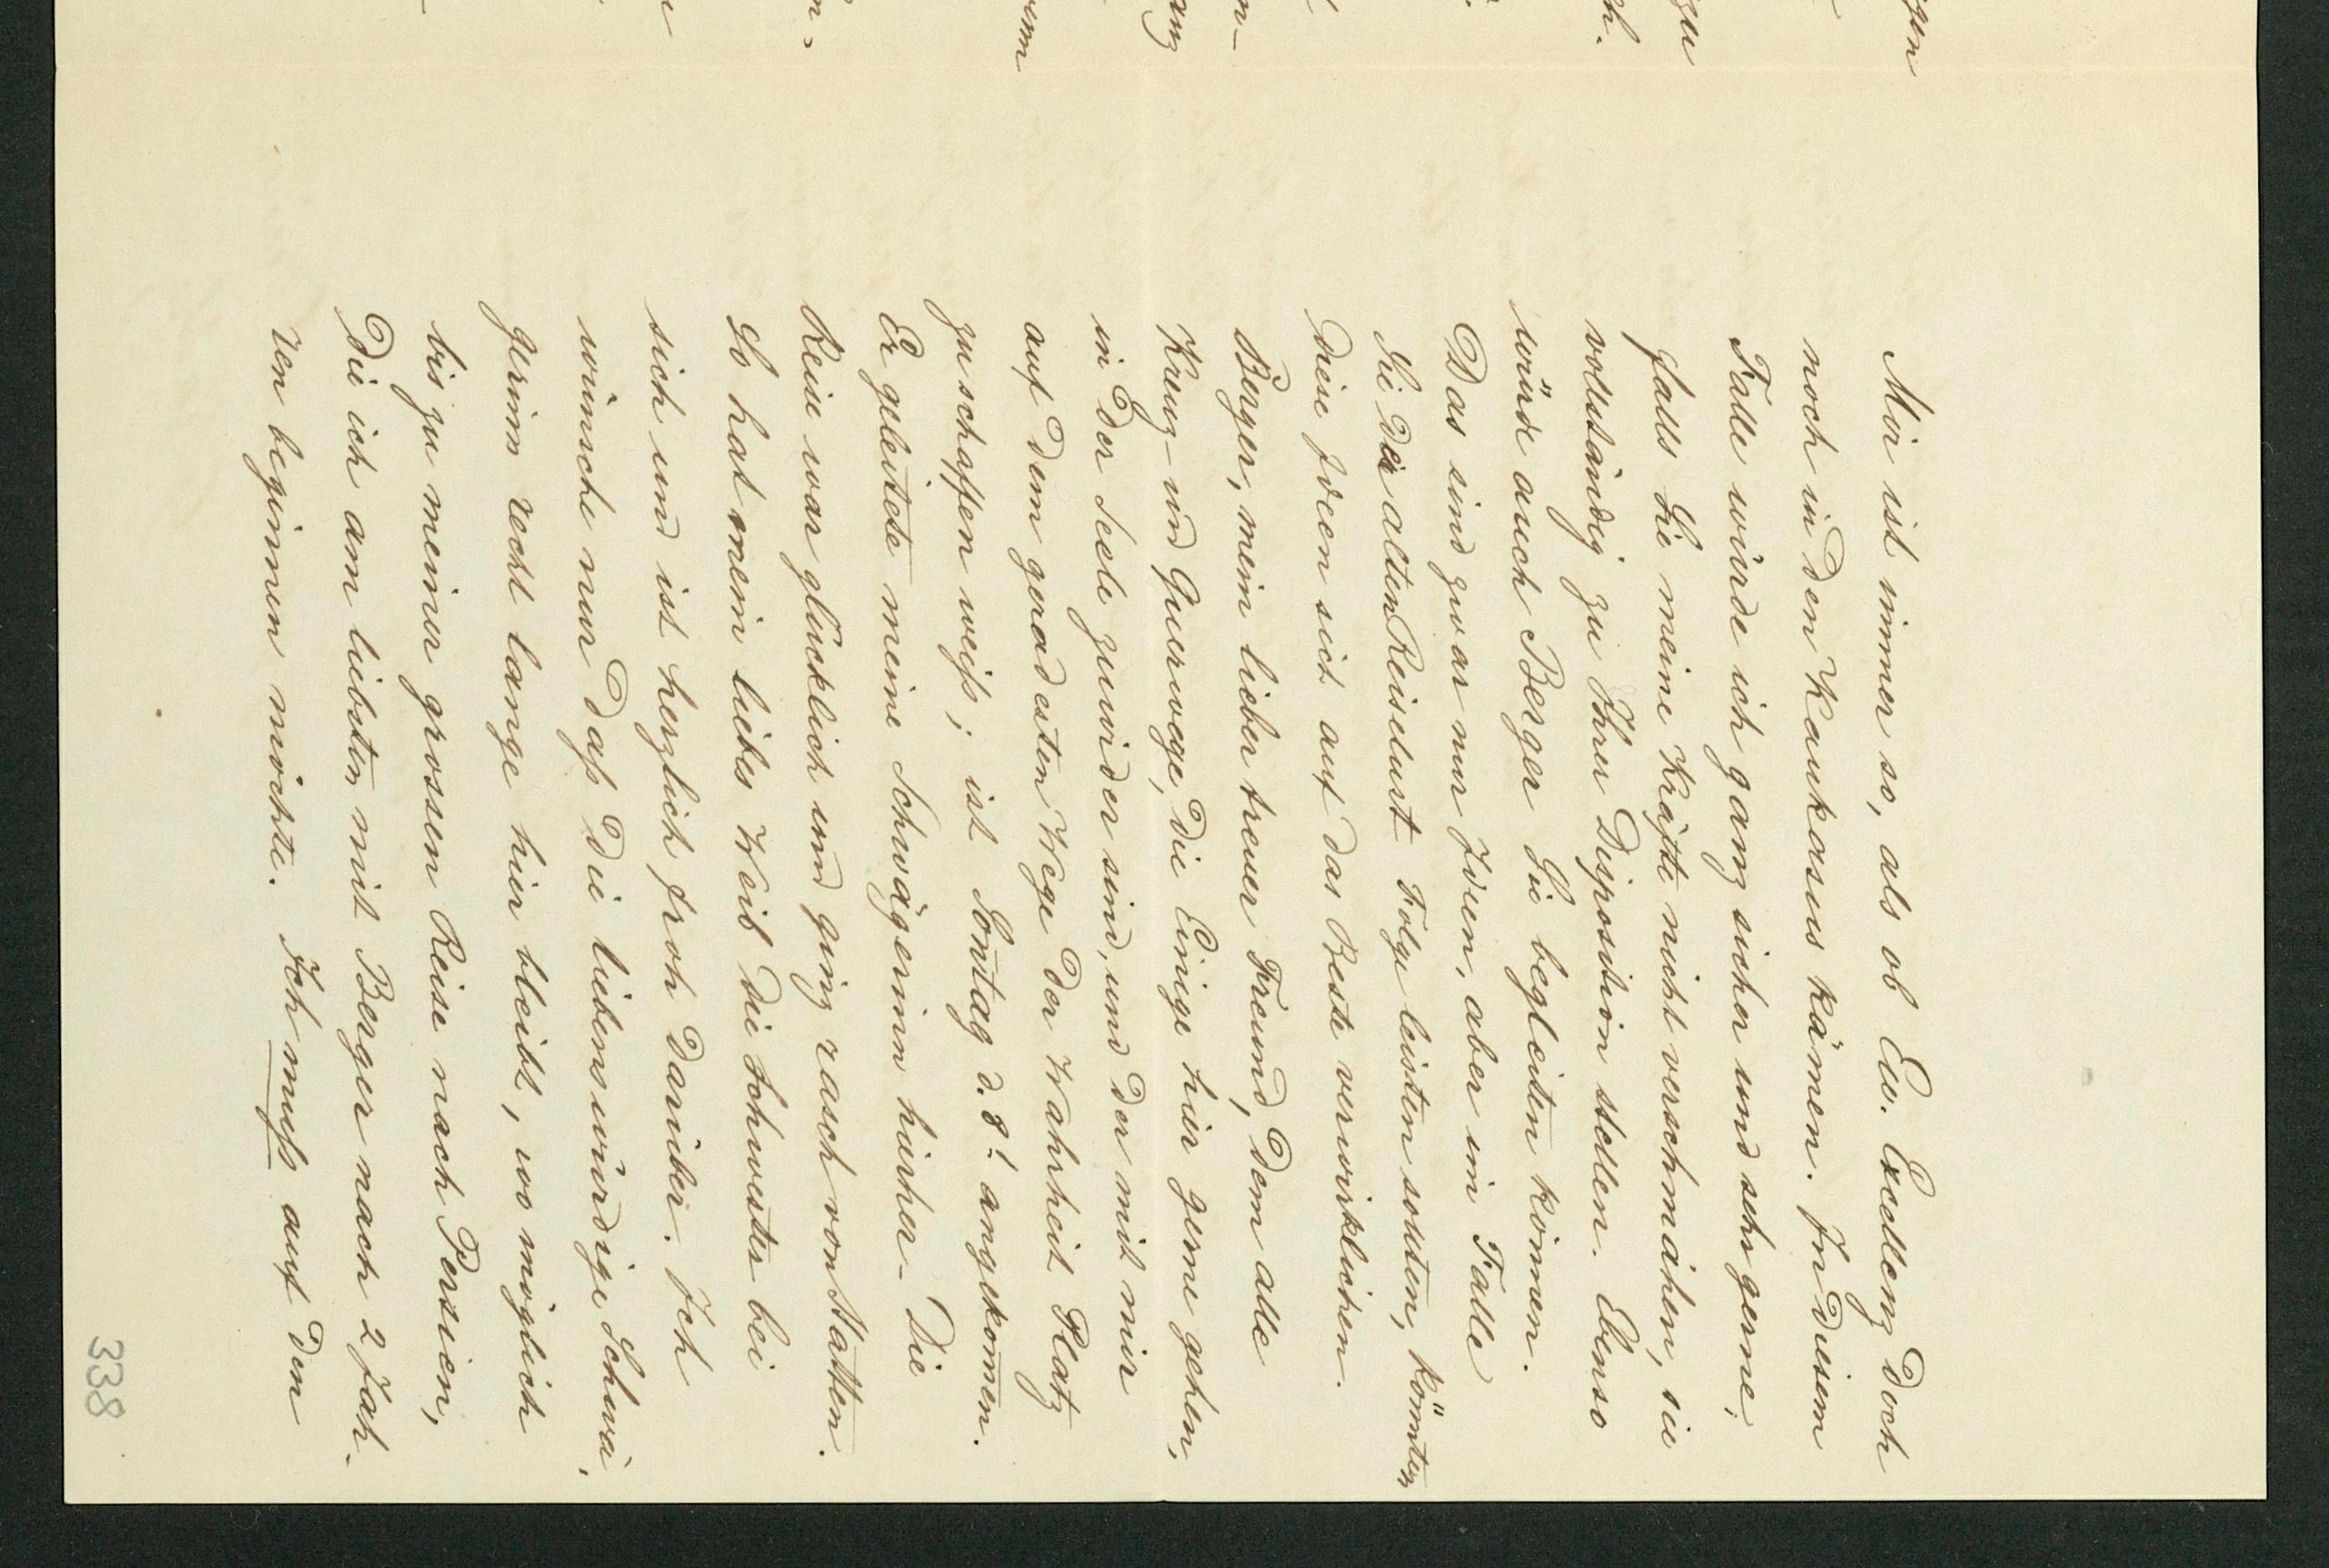 Mir ist immer so, als ob Ew. Excellenz doch
noch in den Kaukasus kämen. In diesem
Falle würde ich ganz sicher und sehr gerne,
falls Sie meine Kräfte nicht verschmähen, sie
vollständig zu Ihrer Disposition stellen. Ebenso
würde auch Berger Sie begleiten können.
Das sind zwar nur Ideen, aber im Falle
Sie der alten Reiselust Folge leisten sollten, könnten
diese Ideen sich auf das Beste verwirklichen.
Berger, mein lieber treuer Freund, dem alle
Kreuz- und Querwege, die Einige hier gerne gehen,
in der Seele zuwider sind, und der mit mir
auf dem geradesten Wege der Wahrheit Platz
zu schaffen weiß; ist Sontag d. 8! angekomen.
Er geleitete meine Schwägerinn hierher. Die
Reise war glücklich und ging rasch von Statten.
So hat mein liebes Weib die Schwester bei
sich und ist herzlich froh darüber. Ich
wünsche nur daß die liebenswürdige Schwä,
gerinn recht lange hier bleibt, wo möglich
bis zu meiner grossen Reise nach Persien,
die ich am liebsten mit Berger nach 2 Jah-
ren beginnen möchte. Ich muß auf den
338
gen
zu
ch.
n-
ang
n.